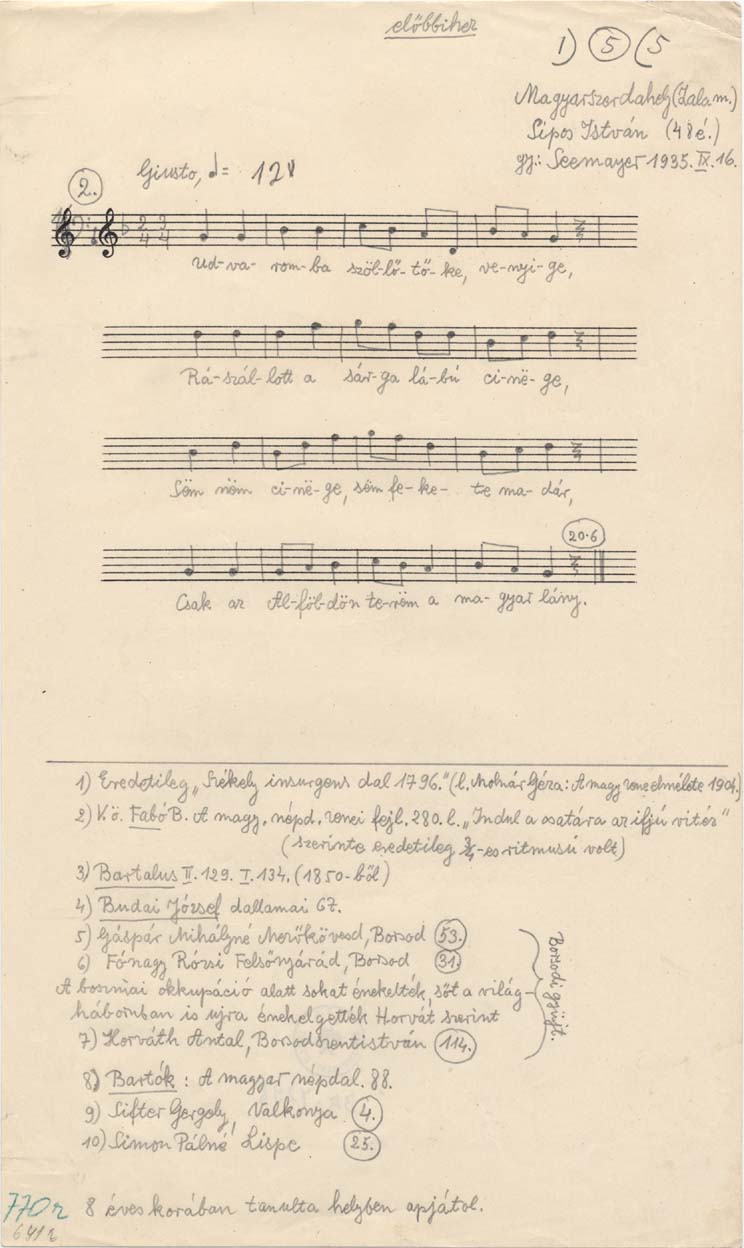 előbbihez
1) 5 (5
Magyarszerdahely (Zala m.)
Sipos István (48 é.)
gy.: Seemayer 1935. IX. 16.
2. Giusto, = 128
2 3
4 4
Ud-va- rom-ba szöl-lő-tő-ke, ve-nyi-ge,
Rá-szál-lott a sár-ga lá-bú ci-në-ge,
Sëm nëm ci-në-ge, sëm fe-ke- te ma-dár,
20.6
Csak az Al-föl-dön te-rëm a ma-gyar lány.
1) Eredetileg „Székely insurgens dal 1796." (l. Molnár Géza: A magy. zene elmélete 1904.)
2) V.ö. Fabó B. A magy. népd. zenei fejl. 280. l. „Indul a csatára az ifjú vitéz"
(szerinte eredetileg 3/4-es ritmusú volt)
3) Bartalus II. 129. I. 134. (1850-ből)
4) Budai József dallamai 67.
5) Gáspár Mihályné Mezőkövesd, Borsod 53.
6) Fónagy Rózsi Felsőnyárád, Borsod 31.
A boszniai okkupáció alatt sokat énekelték, sőt a világ-
háborúban is ujra énekelgették Horvát szerint
7) Horváth Antal, Borsodszentistván 114.
Borsodi gyüjt.
8) Bartók: A magyar népdal. 88.
9) Sifter Gergely, Valkonya 4.
10) Simon Pálné Lispe 25.
770r 8 éves korában tanulta helyben apjától.
641r